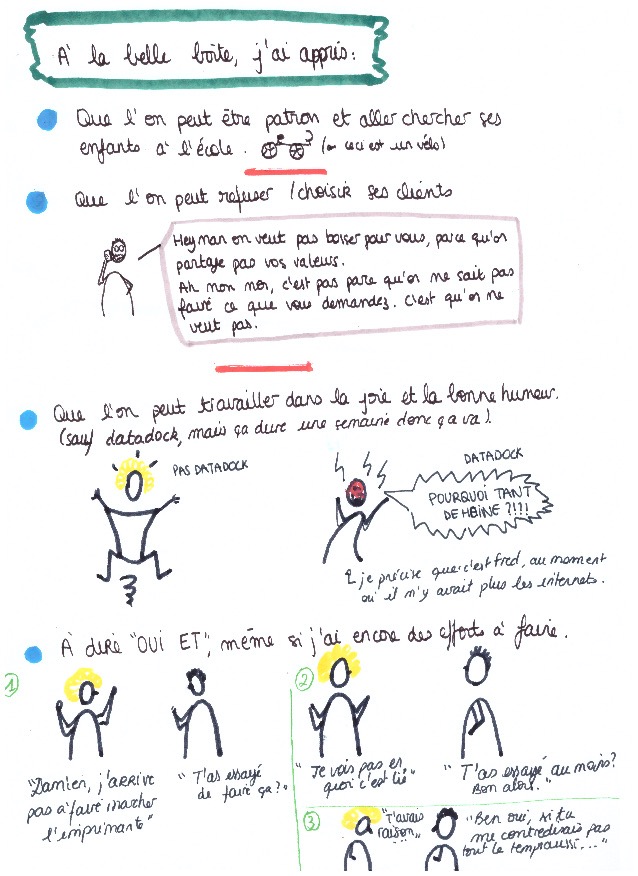 À la belle boîte, j'ai appris:
Que l'on peut être patron et aller chercher ses
enfants à l'école. (ceci est un vélo)
Que l'on peut refuser / choisir ses clients
Hey man on veut pas bosser pour vous, parce qu'on
partage pas vos valeurs.
Ah non non, c'est pas parce qu'on ne sait pas
faire ce que vous demandez. C'est qu'on ne
veut pas.
Que l'on peut travailler dans la joie et la bonne humeur.
(sauf datadock, mais ça dure une semaine donc ça va).
PAS DATADOCK
DATADOCK
POURQUOI TANT
DE HEINE ?!!!
je précise que c'est fred, au moment
où il n'y avait plus les internets.
À dire "OUI ET", même si j'ai encore des efforts à faire.
1
"Damien, j'ARRIVE
pas à faire marcher
l'imprimante"
"T'as essayé
de faire ça?"
2
"Je vois pas en
quoi c'est lié"
"T'as essayé au moins?
Bon alors."
3
"T'avais
raison..."
"Ben oui, si tu
me contredisais pas
tout le temps aussi..."